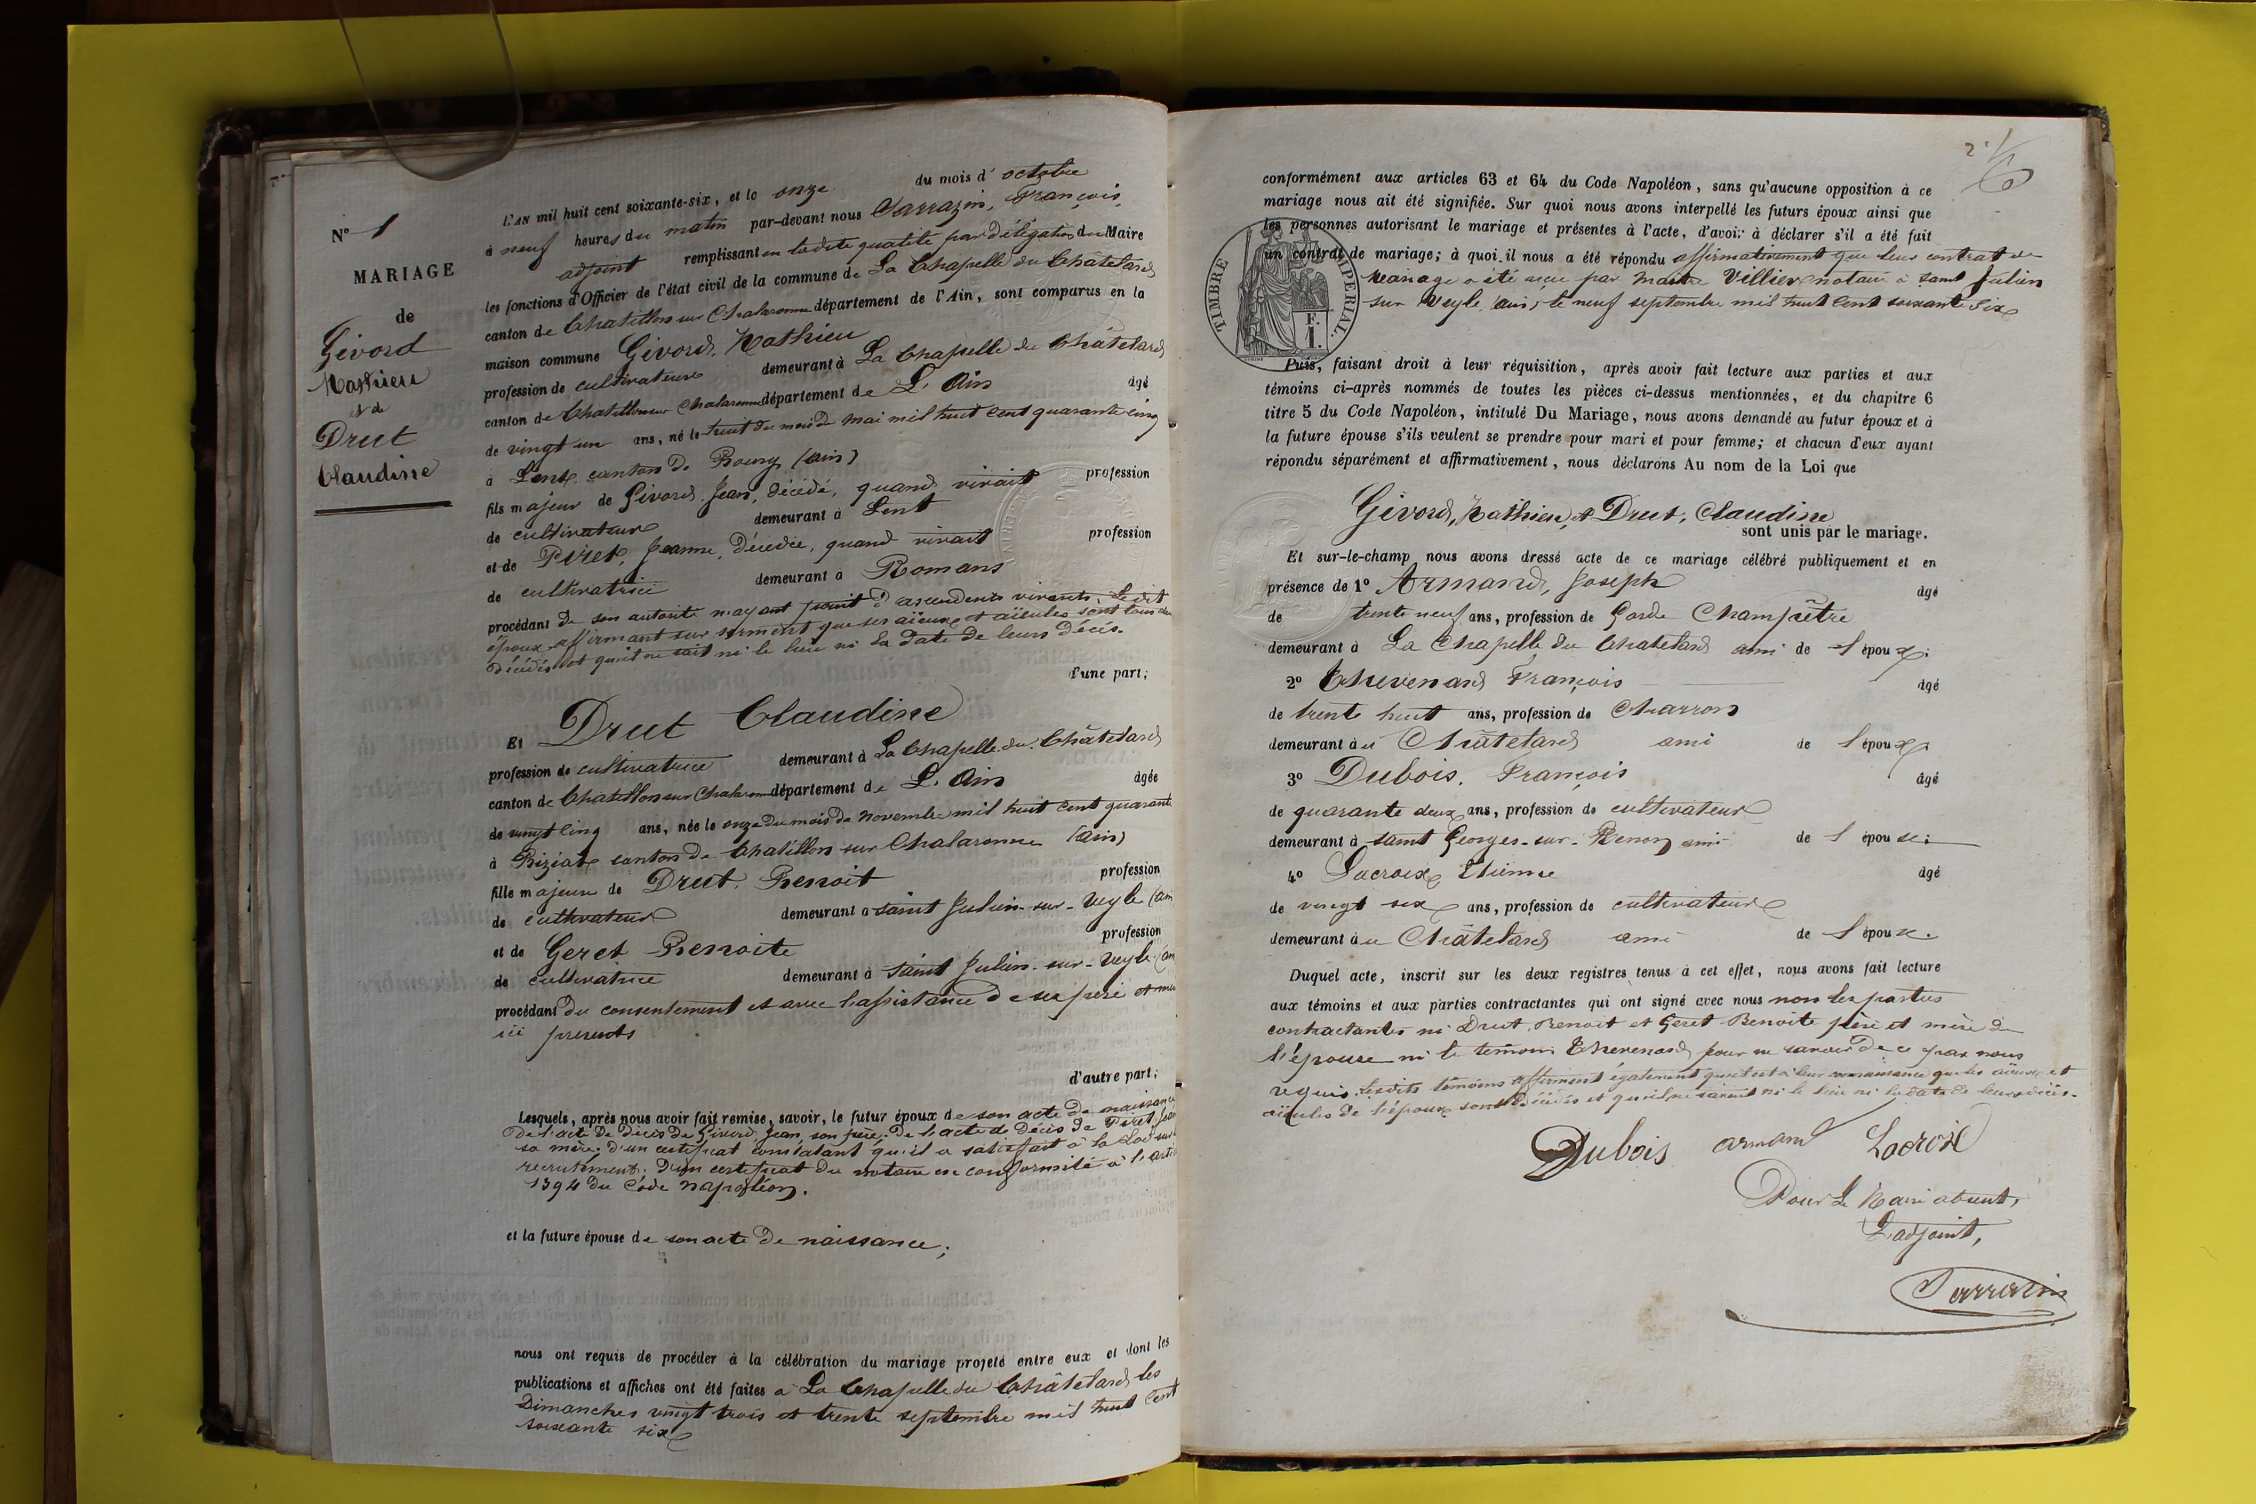 N° 1
MARIAGE
de
Givord
Mathieu
et de
Drut
Claudine
L'AN mil huit cent soixante-six, et le onze du mois d'octobre
à neuf heures du matin par-devant nous Sarrazin, François,
adjoint remplissant en ladite qualité par délégation du Maire
les fonctions d'Officier de l'état civil de la commune de La Chapelle du Châtelard
canton de Chatillon sur Chalaronne département de l'Ain, sont comparus en la
maison commune Givord, Mathieu
profession de cultivateur demeurant à La Chapelle du Châtelard
canton de Chatillon sur Chalaronne département de L'Ain âgé
de vingt un ans, né le huit du mois de mai mil huit cent quarante cinq
à Lent, canton de Bourg (Ain)
fils majeur de Givord, Jean, décédé, quand vivait profession
de cultivateur demeurant à Lent
et de Piret, Jeanne, décédée, quand vivait profession
de cultivatrice demeurant à Romans
procédant de son autorité n'ayant point d'ascendents vivants. Le dit
époux affirmant sur serment que ses aïeux et aïeules sont tous
décédés et qu'il ne sait ni le lieu ni la date de leurs décès.
d'une part;
Et Drut Claudine
profession de cultivatrice demeurant à La Chapelle du Châtelard
canton de Chatillon sur Chalaronne département de L'Ain âgée
de vingt cinq ans, née le onze du mois de novembre mil huit cent quarante
à Biziat canton de Chatillon sur Chalaronne (Ain)
fille majeure de Drut, Benoit profession
de cultivateur demeurant à saint Julien-sur-Veyle (Ain
et de Geret Benoite profession
de cultivatrice demeurant à saint Julien-sur-Veyle (Ain
procédant du consentement et avec l'assistance de ses père et mère
ici présents
d'autre part;
Lesquels, après nous avoir fait remise, savoir, le futur époux de son acte de naissance
de l'acte de décès de Givord Jean, son père; de l'acte de décès de Piret Jeanne
sa mère; d'un certificat constatant qu'il a satisfait à la Loi sur le
recrutement; d'un certificat du notaire en conformité à l'article
1394 du Code Napoléon.
et la future épouse de son acte de naissance;
nous ont requis de procéder à la célébration du mariage projeté entre eux et dont les
publications et affiches ont été faites à La Chapelle du Châtelard les
Dimanches vingt trois et trente septembre mil huit cent
soixante six
conformément aux articles 63 et 64 du Code Napoléon, sans qu'aucune opposition à ce
mariage nous ait été signifiée. Sur quoi nous avons interpellé les futurs époux ainsi que
les personnes autorisant le mariage et présentes à l'acte, d'avoir à déclarer s'il a été fait
un contrat de mariage; à quoi il nous a été répondu affirmativement que leur contrat de
Mariage a été reçu par maître Villier notaire à saint Julien
sur Veyle, Ain, le neuf septembre mil huit cent soixante six
TIMBRE IMPERIAL.
F.
1.
Puis, faisant droit à leur réquisition, après avoir fait lecture aux parties et aux
témoins ci-après nommés de toutes les pièces ci-dessus mentionnées, et du chapitre 6
titre 5 du Code Napoléon, intitulé Du Mariage, nous avons demandé au futur époux et à
la future épouse s'ils veulent se prendre pour mari et pour femme; et chacun d'eux ayant
répondu séparément et affirmativement, nous déclarons Au nom de la Loi que
Givord, Mathieu, et Drut, Claudine
sont unis par le mariage.
Et sur-le-champ nous avons dressé acte de ce mariage célébré publiquement et en
présence de 1° Armand, Joseph âgé
de trente neuf ans, profession de Garde Champêtre
demeurant à La Chapelle du Chatelard ami de l'époux;
2° Thevenard François âgé
de trente huit ans, profession de Charron
demeurant au Châtelard ami de l'époux;
3° Dubois, François âgé
de quarante deux ans, profession de cultivateur
demeurant à saint Georges-sur-Renon ami de l'épouse;
4° Lacroix Etienne âgé
de vingt six ans, profession de cultivateur
demeurant au Châtelard ami de l'épouse.
Duquel acte, inscrit sur les deux registres tenus à cet effet, nous avons fait lecture
aux témoins et aux parties contractantes qui ont signé avec nous non les parties
contractantes ni Drut Benoit et Geret Benoite père et mère de
l'épouse ni le témoin Thevenard pour ne savoir de ce par nous
requis. Lesdits témoins affirment également qu'il est à leur connaissance que les aïeux et
aïeules de l'époux sont décédés et qu'ils ne savent ni le lieu ni la date de leurs décès.
Dubois armand Lacroix
Pour Le Maire absent,
L'adjoint,
Sarrazin